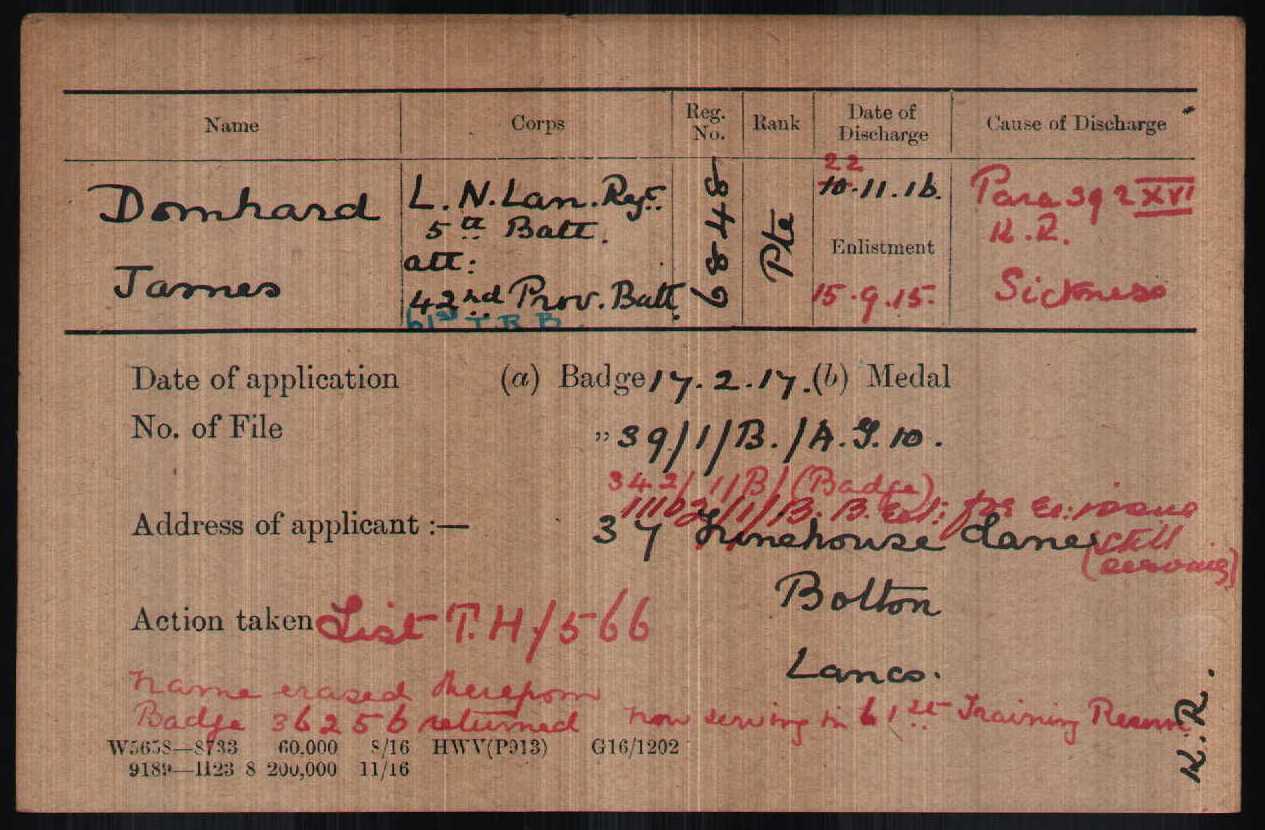 Name Corps Reg. No. Rank Date of Discharge Cause of Discharge
Domhard
James
L. N. Lan. Regt.
5th Batt.
att:
42nd Prov. Batt.
61st T. R. B.
6848
Pte
22
10.11.16.
Enlistment
15.9.15.
Para 392 XVI
K.R.
Sickness
Date of application (a) Badge 17.2.17. (b) Medal
No. of File " 39/1/B./A.G.10.
342/11B/(Badge)
1102/1/B. B. for issue
Address of applicant :— 37 Limehouse Lane
(still
serving)
Bolton
Lancs.
Action taken List T.H/566
Name erased therefrom
Badge 36256 returned now serving in 61st Training Reserve
K.R.
W5658—8733 60.000 8/16 HWV(P913) G16/1202
9189—1123 8 200,000 11/16